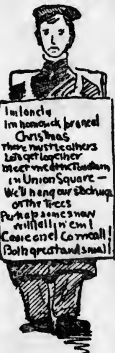 Im lonely
Im homesick for and
Christmas
There must be others
Lets get together
Meet me at the Fountain
in Union Square —
We'll hang our stockings
on the Trees
Perhaps some snow
will fall in 'em!
Come one! Come all!
Both great and small!